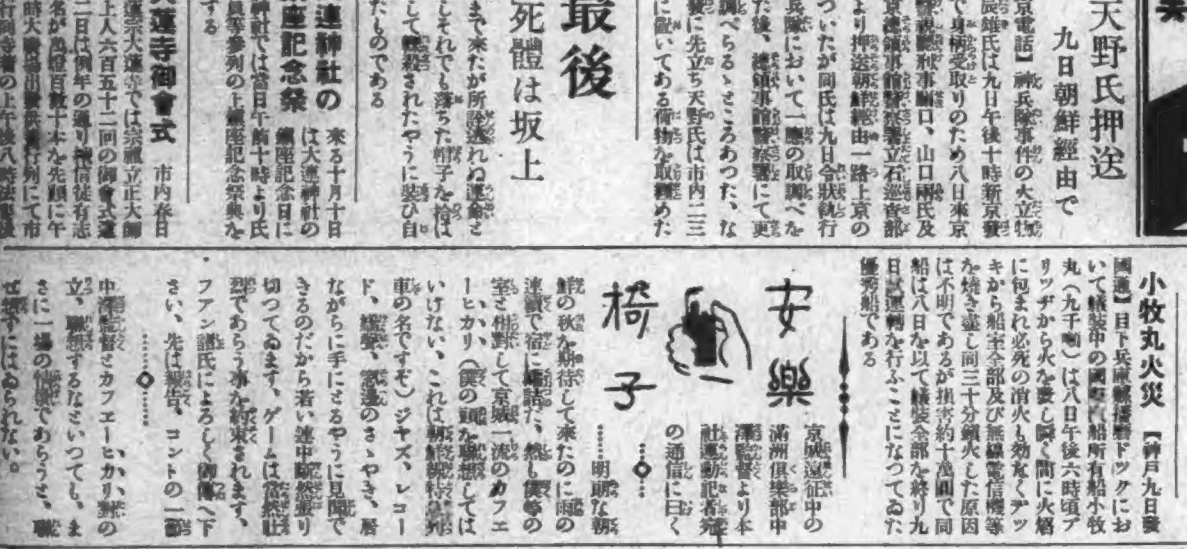 天野氏押送
九日朝鮮經由で
京電話】神兵隊事件の大立物
辰雄氏は九日午後十時新京發
で身柄受取りのため八日來京
口、山口兩氏及
京總領事館警察署立石巡査部
より押送朝鮮經由一路上京の
ついたが同氏は九日令狀執行
兵隊において一應の取調べを
た後、總領事館警察署にて更
調べらるゝところあつた、な
發に先立ち天野氏は市內二三
に置いてある荷物を取纏めた
最後
死體は坂上
まで來たが所詮逃れぬ運命と
しそれでも落ちた帽子を拾は
して轢殺されたやうに裝ひ自
たものである
連神社の
座記念祭
來る十月十日
は大連神社の
鎭座記念日に
神社では當日午前十時より氏
員等參列の上鎭座記念祭典を
する
大蓮寺御會式
市內春日
蓮宗大蓮寺では宗祖立正大師
上人六百五十二回の御會式を
二日は例年の通り
信徒有志
名が萬燈百數十本を先頭に午
小牧丸火災
【神戶九日發
國通】目下兵庫
ドツクにお
いて艤裝中の國際汽船所有船小牧
丸（九千噸）は八日午後六時頃ブ
リツヂから火を發し瞬く間に火焰
に包まれ必死の消火も効なくデツ
キから船室全部及び無線電信機等
を燒き盡し同三十分鎭火した原因
は不明であるが損害約十萬圓で同
船は八日を以て艤裝全部を終り九
日試運轉を行ふことになつてゐた
優秀船である
安樂
椅子
京城遠征中の
滿洲俱樂部中
澤監督より本
社運動記者宛
の通信に曰く
……明朗な朝
鮮の秋を期待して來たのに雨の
連續で宿に
詰だ、然も僕等の
室と相對して京城一流のカフエ
ーヒカリ（僕の頭を聯想しては
いけない、これは朝鮮線特急列
車の名ですぞ）ジヤズ、レコー
ド、嬌聲、
のさゝやき、居
ながらに手にとるやうに見聞で
きるのだから若い連中
切つてゐます、ゲームは當然壯
烈であらう事を約束されます、
フアン諸氏によろしく御傳へ下
さい、先は報告、コントの一節
中澤監督とカフエーヒカリ、對の
立、聯想するなといつても、ま
さに一場の情景であらうさ、聯
せずにはゐられない。